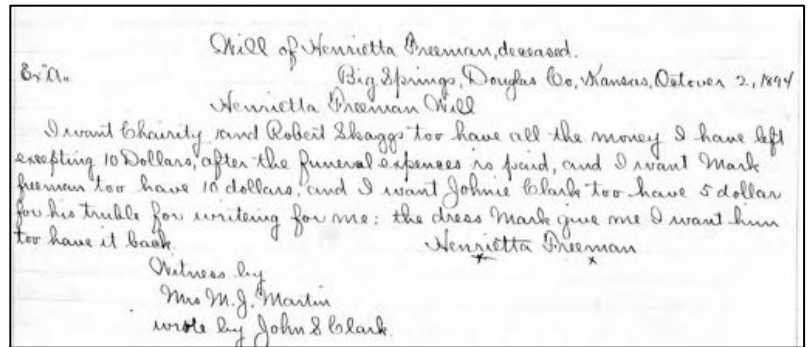 Will of Henrietta Freeman, deceased.
Ex "A".
Big Springs, Douglas Co, Kansas, Octover 2, 1894
Henrietta Freeman Will
I want Chairity and Robert Skaggs too have all the money I have left
excepting 10 Dollars, after the funeral expences is paid, and I want Mark
freeman too have 10 dollars, and I want Johnie Clark too have 5 dollar
for his truble for writeing for me: the dress Mark give me I want him
too have it back. Henrietta Freeman
x x
Witness by
Mrs M. J. Martin
wrote by John S Clark.